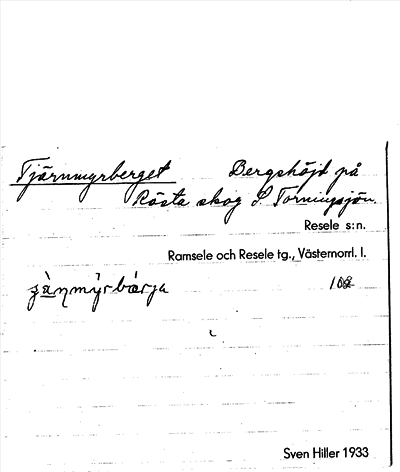 Tjärnmyrberget Bergshöjd på
Rösta skog S Torningsjön.
Resele s:n.
Ramsele och Resele tg., Västernorrl. l.
Sven Hiller 1933